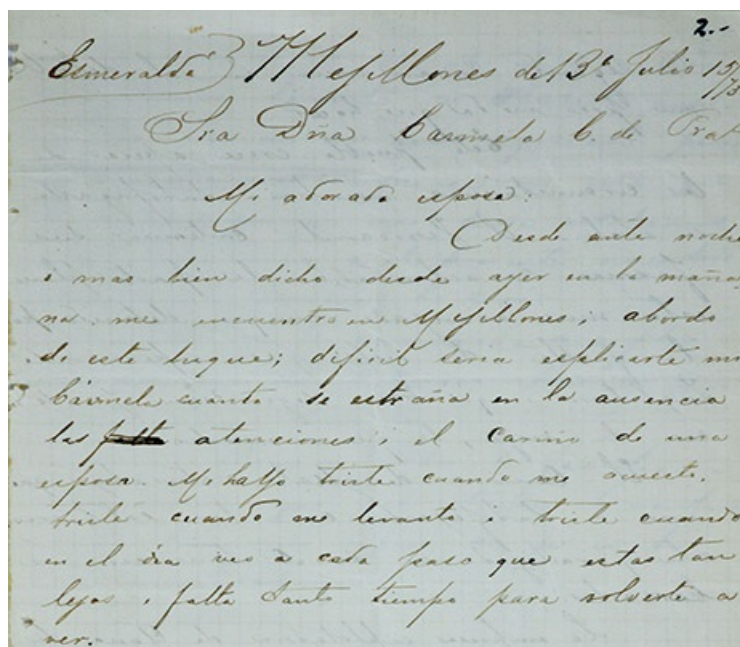 2.-
Esmeralda Mejillones de B.ª Julio 15/73
Sra Dña Carmela C. de Prat
Mi adorada esposa:
Desde ante noche
i mas bien dicho desde ayer en la maña
na. me encuentro en Mejillones, abordo
de este buque; dificil seria esplicarte mi
Cármela cuanto se estraña en la ausencia
las atenciones i el cariño de una
esposa. Me hallo triste cuando me acuesto.
triste cuando me levanto i triste cuando
en el dia veo a cada paso que estas tan
lejos i falta tanto tiempo para volverte a
ver.